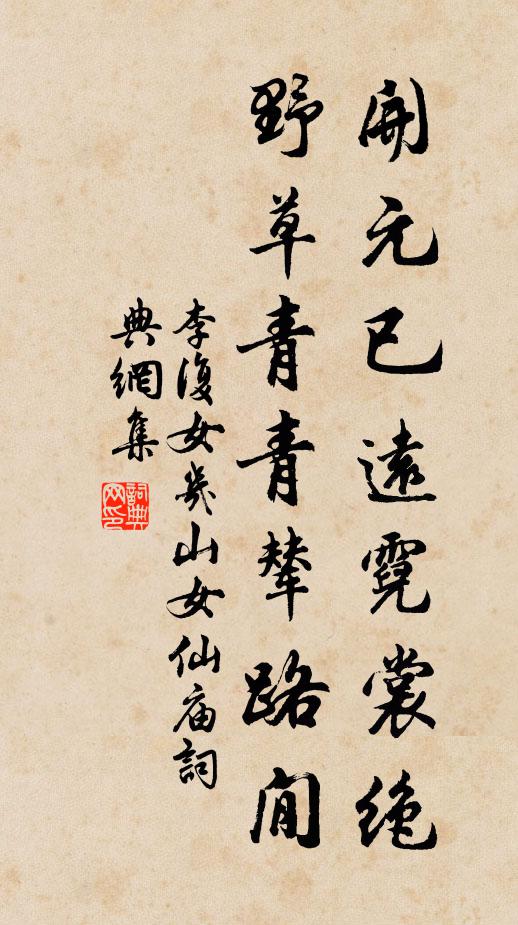 開元已遠霓裳絶
野草青青輦路間
李復女幾山女仙廟詞
典網集
詞典
网印